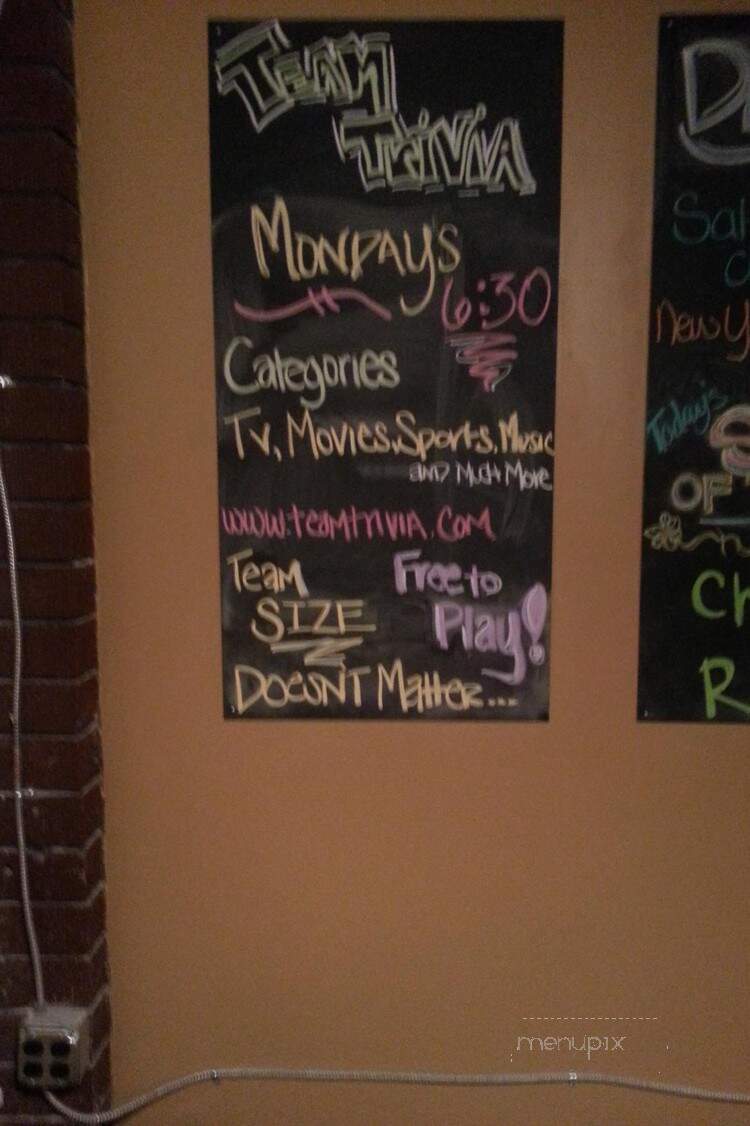 Team
Trivia
Monday's
6:30
Categories
Tv, Movies, Sports, Music
and Much More
www.teamtrivia.com
Team
SIZE
Free to
Play!
Doesn't Matter...
Sal
New Y
Today's
OF
Ch
R
menupix